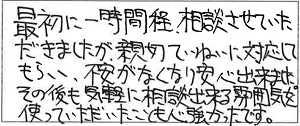 最初に一時間程、相談させていた
だきましたが、親切ていねいに対応して
もらい、不安がなくなり安心出来ました。
その後も気軽に相談出来る雰囲気を
使っていただいたことも心強かったです。